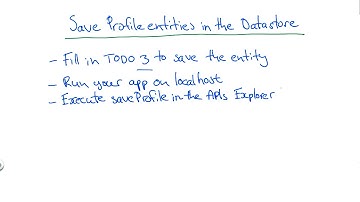 Save Profile entities in the Datastore
- Fill in TODO 3 to save the entity
- Run your app on localhost
- Execute saveProfile in the APIs Explorer